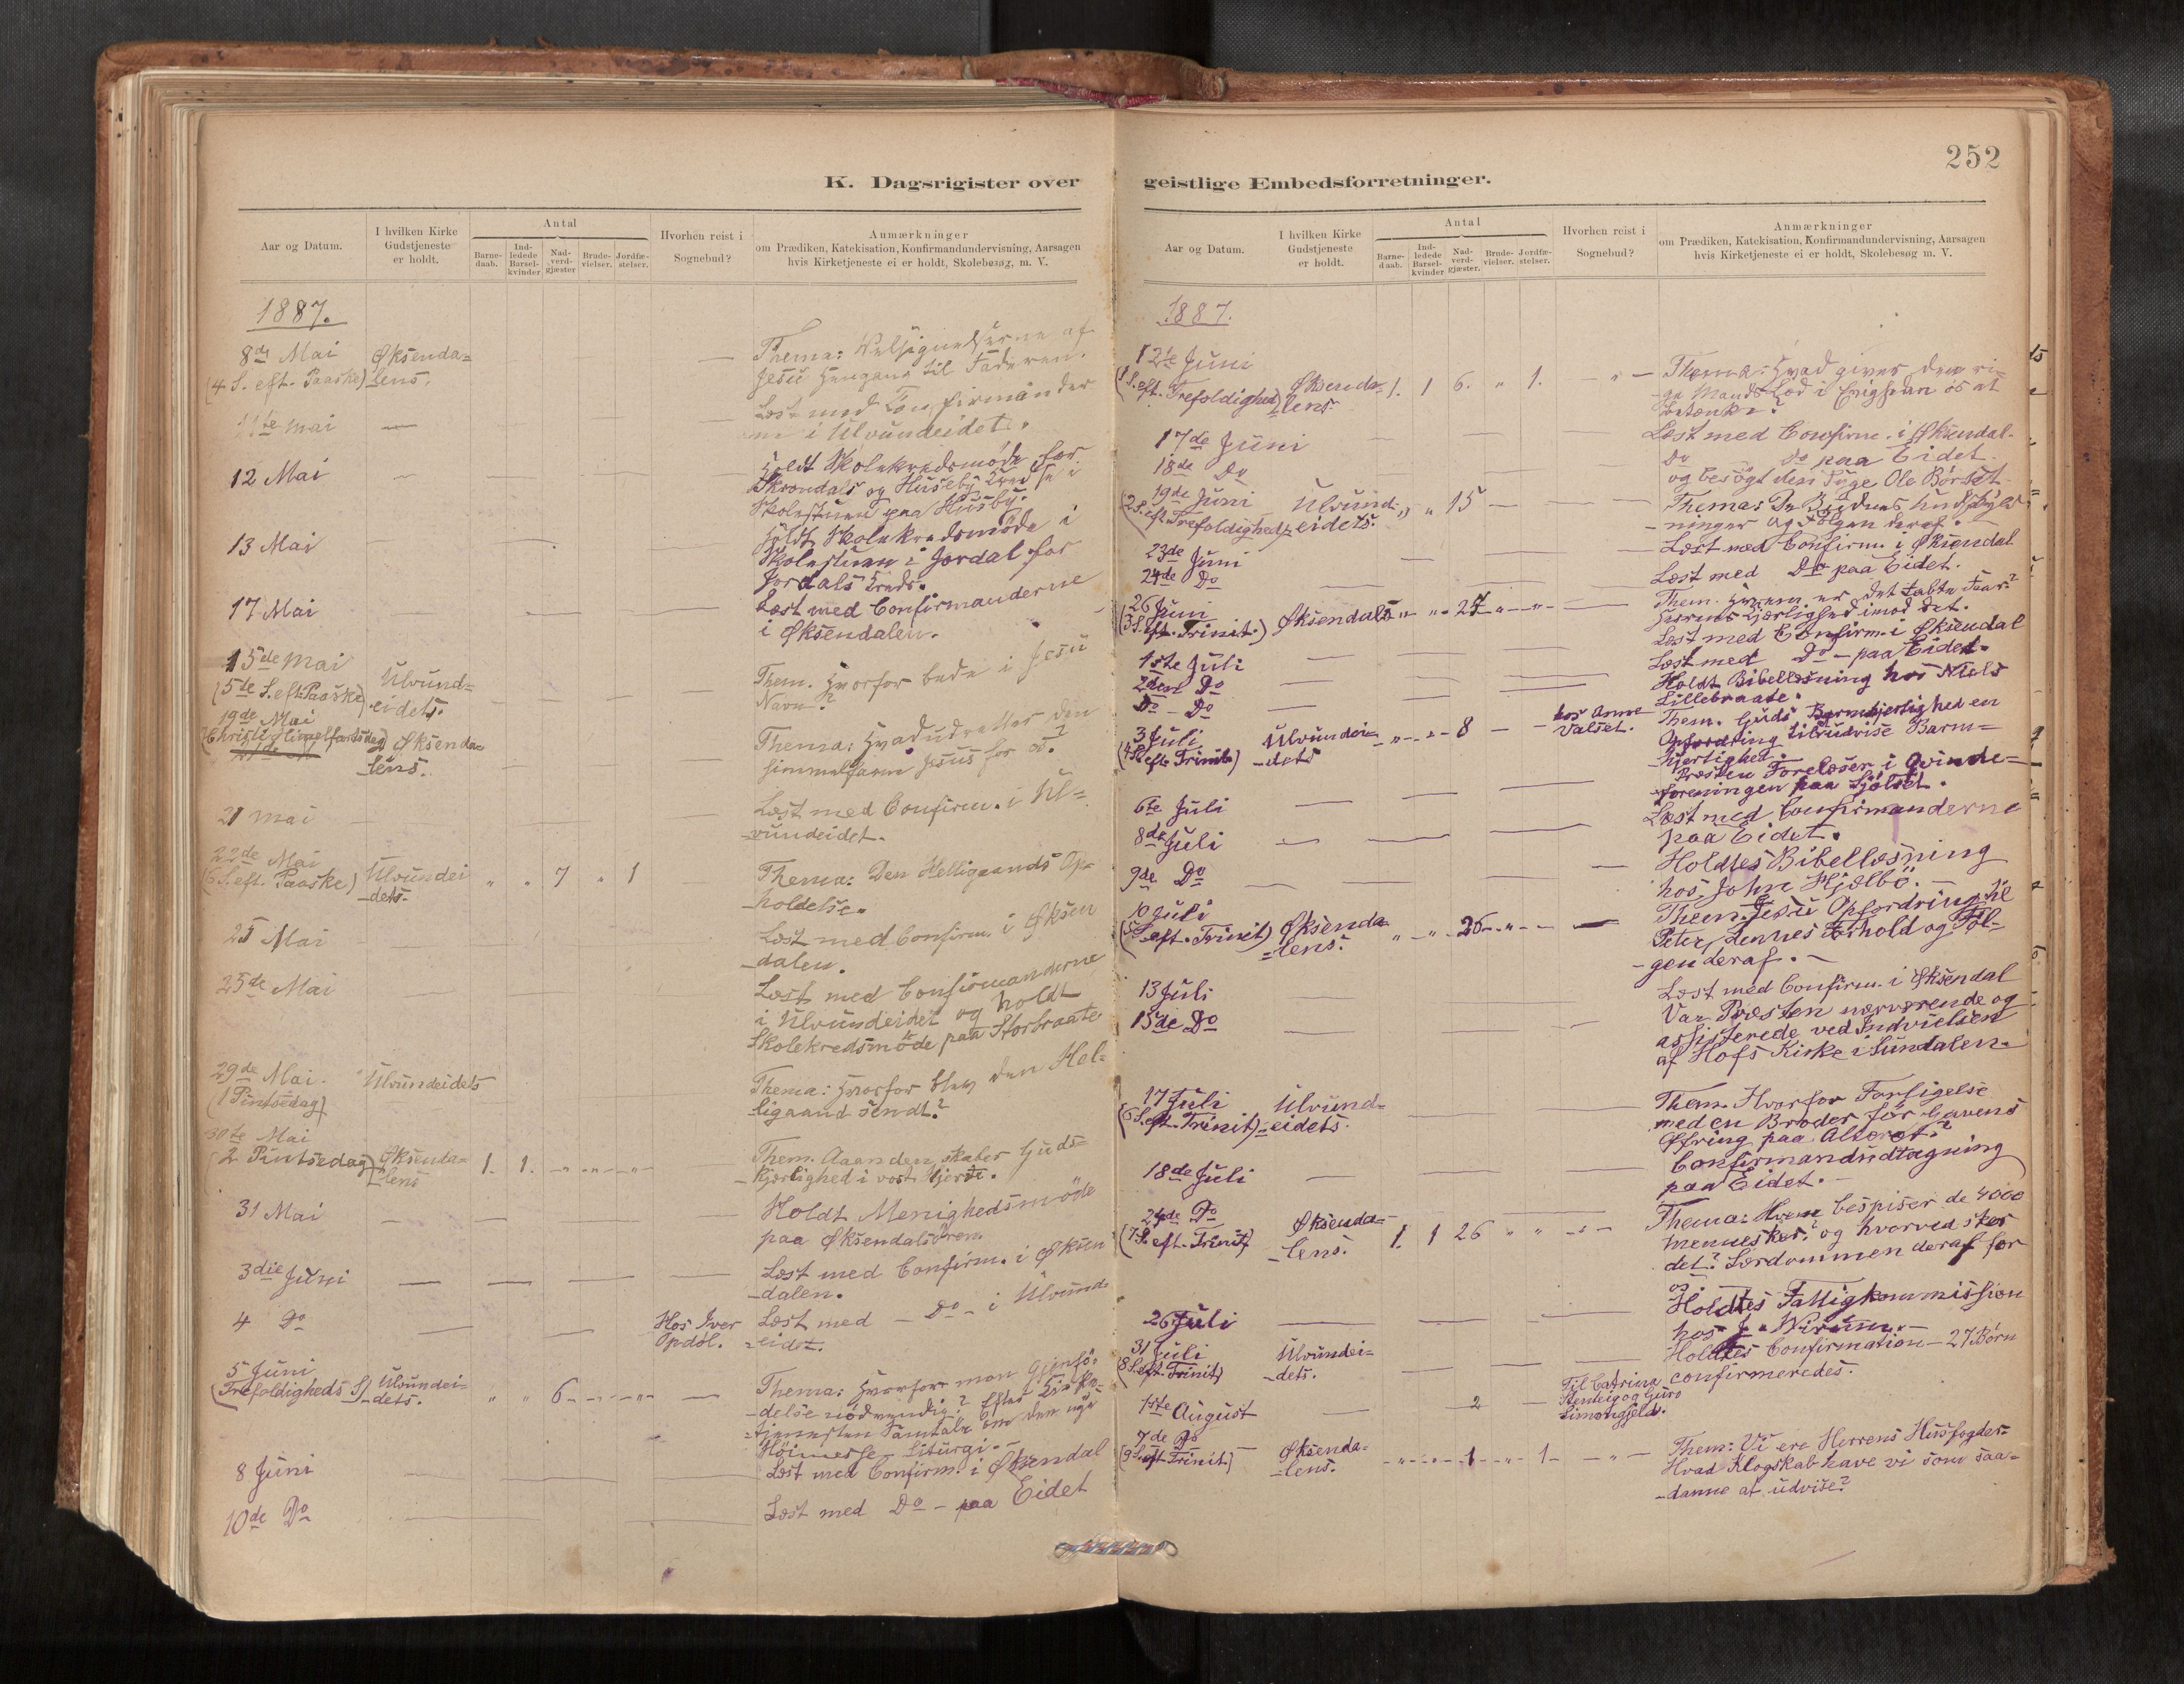 252
K. Dagsrigister over
geistlige Embedsforretninger.
Aar og Datum.
I hvilken Kirke
Gudstjeneste
er holdt.
Antal
Barne-
daab.
Ind-
ledede
Barsel-
kvinder
Nad-
verd-
gjæster
Brude-
vielser.
Jordfæ-
stelser.
Hvorhen reist i
Sognebud?
Anmærkninger
om Prædiken, Katekisation, Konfirmandundervisning, Aarsagen
hvis Kirketjeneste ei er holdt, Skolebesøg, m. V.
1887.
8de Mai Øksenda=
(4. S. eft. Paaske) lens.
Thema: Velsignelserne af
Jesu Hengang til Faderen.
11te Mai —
Læst med Confirmander
ne i Ulvundeidet.
12 Mai
Holdt Skolekredsmøde for
og Huseby Kreds i
Skolestuen paa Husby.
13 Mai
Holdt Skolekredsmøde i
Skolestuen i Jordal for
Jordals Kreds.
17 Mai
Læst med Confirmanderne
i Øksendalen.
15de Mai Ulvund=
(5te S. eft. Paaske) eidets.
Them. Hvorfor bede i Jesu
Navn?
19de Mai
(Christi Himmelfartsdag) Øksenda=
lens.
Thema: Hvad udretter den
himmelfarne Jesus for os?
21 Mai
Læst med Confirm. i Ul=
vundeidet.
22de Mai
(6 S. eft. Paaske) Ulvundei
-dets. " " 7 " 1
Thema: Den Helligaands Op-
holdelse.
25 Mai
Læst med Confirm. i Øksen
-dalen.
25de Mai
Læst med Confirmanderne
i Ulvundeidet og holdt
Skolekredsmøde paa Storbraate
29de Mai. Ulvundeidets
(1 Pintsedag)
Thema: Hvorfor blev den Hel-
ligaand sendt?
30te Mai
(2 Pintsedag) Øksenda=
lens 1. 1. - " - " - " -
Them. Aanden skaber Guds=
-kjærlighed i vort Hjerte.
31 Mai
Holdt Menighedsmøde
paa Øksendalsøren.
3die Juni
Læst med Confirm. i Øksen
-dalen.
4 Do
Hos Iver
Opdøl.
Læst med — Do - i Ulvunds
=eidet.
5 Juni
(Trefoldigheds S) Ulvundei-
-dets. " " 6 - " - " -
Thema: Hvorfor man Gjenfø-
-delse nødvendig? Efter Kirke
=tjenesten Samtale om den nye
Høimesse Liturgi. -
8 Juni
Læst med Confirm. i Øksendal
10de Do
Læst med Do — paa Eidet
Aar og Datum.
I hvilken Kirke
Gudstjeneste
er holdt.
Antal
Barne-
daab.
Ind-
ledede
Barsel-
kvinder
Nad-
verd-
gjæster.
Brude-
vielser.
Jordfæ-
stelser.
Hvorhen reist i
Sognebud?
Anmærkninger
om Prædiken, Katekisation, Konfirmandundervisning, Aarsagen
hvis Kirketjeneste ei er holdt, Skolebesøg m. V.
1887.
12te Juni
(1 S. eft. Trefoldighed) Øksenda-
lens. 1. 1 6. " 1. - " -
Thema: Hvad giver den ri-
-ge Mands Lod i Evigheden os at
betænke?
17de Juni
Læst med Confirm. i Øksendal.
18de Do
Do Do paa Eidet.
og besøgt den Syge Ole Børset.
19de Juni
(2 S. eft Trefoldighed) Ulvund-
eidets. " " 15 —
Thema: De Budnes Undskyld-
-ninger og Følgen deraf.
23de Juni
Læst med Confirm. i Øksendal
24de Do
Læst med Do paa Eidet.
26 Juni
(3 S. eft. Trinit.) Øksendals " " 27 - " - " -
Them. Hvem er det tabte Faar?
Herrens Kjærlighed imod det.
1ste Juli
Læst med Confirm. i Øksendal
2den Do
Læst med Do - paa Eidet.
Do - Do
Holdt Bibellæsning hos Niels
Lillebraate.
3 Juli
(4 S. eft. Trinit.) Ulvundei-
-dets - " - " - 8
hos Anne
Valset.
Them. Guds Barmhjertighed en
Opfordring til udvise Barm=
-hjertighed.
6te Juli
Præsten Forelæser i Qvinde-
foreningen paa Sjølset.
8de Juli
Læst med Confirmanderne
paa Eidet.
9de Do
Holdtes Bibellæsning
hos John Hjælbø. -
10 Juli
(5 S. eft. Trinit) Øksenda-
=lens. " - " - 26 - " -
Them. Jesu Opfordring til
Peter, dennes Forhold og Føl-
-gen deraf. -
13 Juli
Læst med Confirm. i Øksendal
15de Do
Var Præsten nærværende og
assisterede ved Indvielsen
af Hofs Kirke i Sundalen.
17 Juli
(6 S. eft. Trinit) Ulvund=
=eidets.
Them. Hvorfor Forligelse
med en Broder før Gavens
Ofring paa Alteret?
18de Juli
Confirmandudtagning
paa Eidet. -
24de Do
(7. S. eft. Trinit) Øksenda-
-lens. 1. 1 26 " " - " -
Thema: Hvem bespiser de 4000
Mennesker? og hvorved sker
det? Lærdommen deraf for
os.
26 Juli
Holdtes Fattigkommission
hos
31 Juli
(8 S. eft. Trinit) Ulvundei=
-dets.
Holdtes Confirmation — 27 Børn
confirmeredes.
1ste August — 2
Til Catrina
og Guro
Simongjeld.
7de Do
(9 S. eft. Trinit.) Øksenda-
-lens. - " - " - 1 - " - 1 - " -
Them: Vi ere Herrens Husfogder-
Hvad Klogskab have vi som saa-
-danne at udvise?